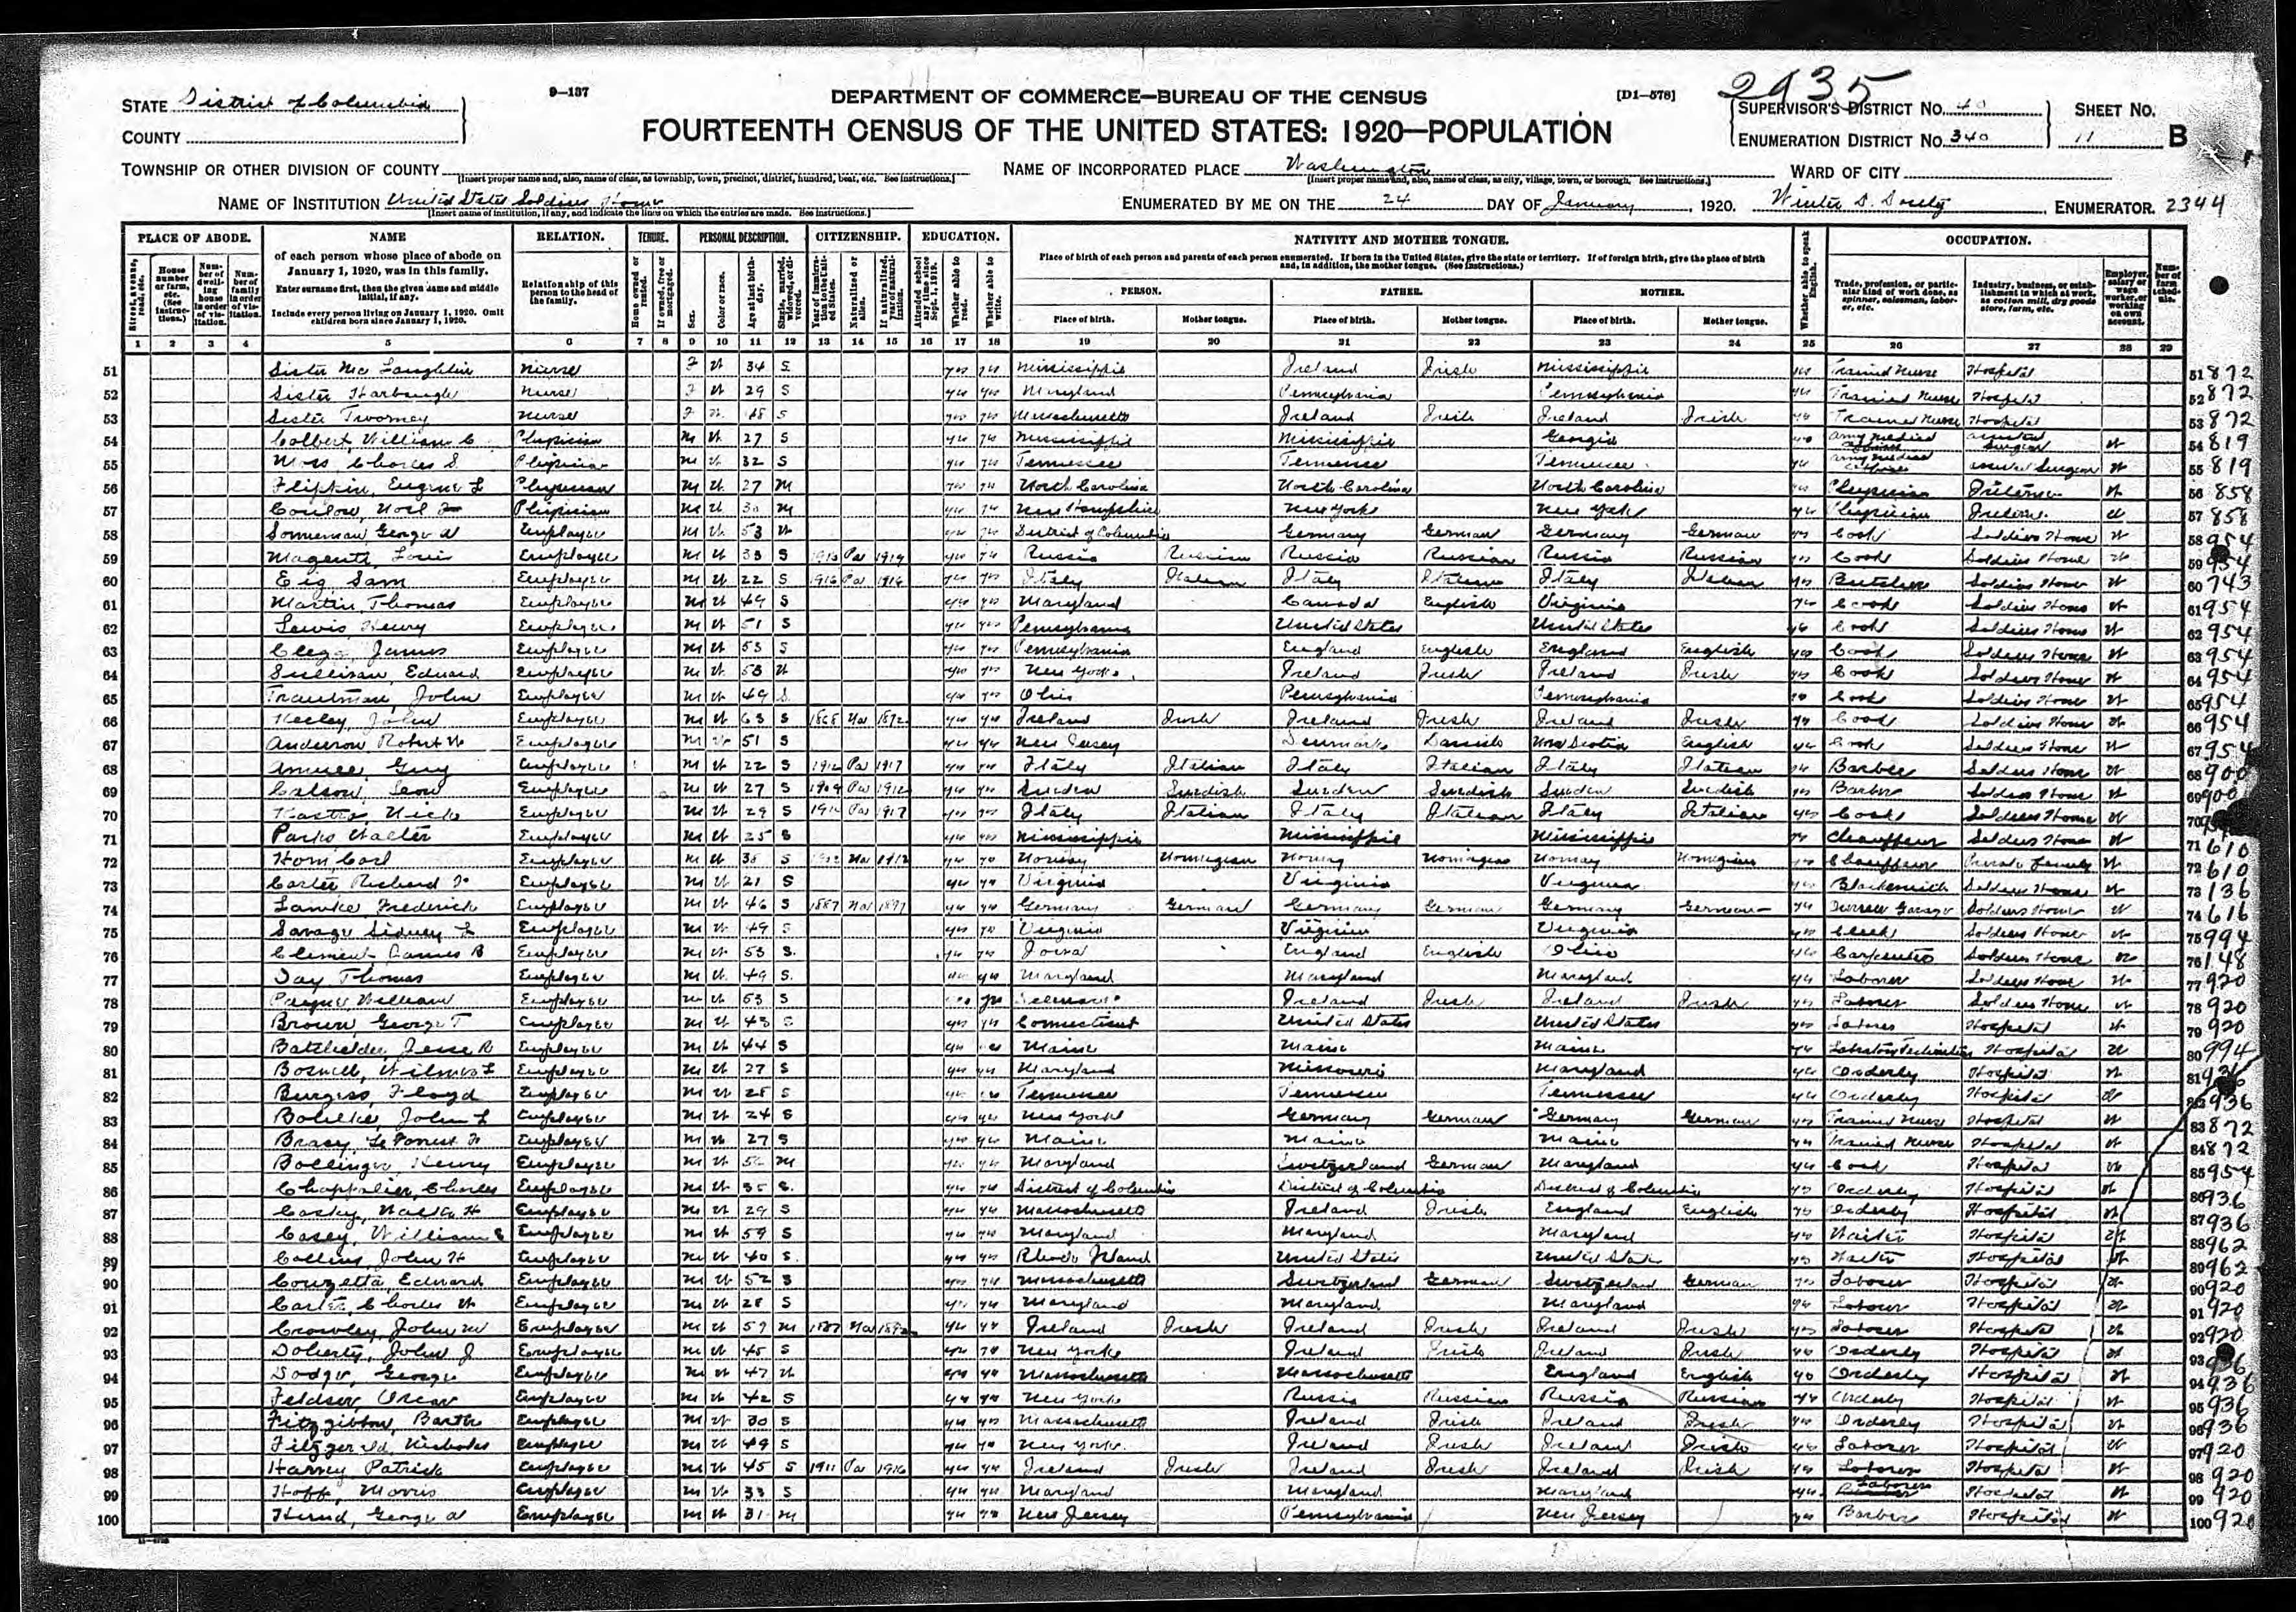 9—137
DEPARTMENT OF COMMERCE—BUREAU OF THE CENSUS
[D1—578]
2935
STATE District of Columbia
SUPERVISOR'S DISTRICT No. 40
SHEET No.
COUNTY
FOURTEENTH CENSUS OF THE UNITED STATES: 1920—POPULATION
ENUMERATION DISTRICT No. 340
11 B
TOWNSHIP OR OTHER DIVISION OF COUNTY
[Insert proper name and, also, name of class, as township, town, precinct, district, hundred, beat, etc. See instructions.]
NAME OF INCORPORATED PLACE Washington
[Insert proper name and, also, name of class, as city, village, town, or borough. See instructions.]
WARD OF CITY
NAME OF INSTITUTION United States Soldiers Home
[Insert name of institution, if any, and indicate the lines on which the entries are made. See instructions.]
ENUMERATED BY ME ON THE 24 DAY OF January, 1920.
ENUMERATOR. 2344
PLACE OF ABODE. NAME RELATION. TENURE. PERSONAL DESCRIPTION. CITIZENSHIP. EDUCATION. NATIVITY AND MOTHER TONGUE. OCCUPATION.
of each person whose place of abode on January 1, 1920, was in this family.
Enter surname first, then the given name and middle initial, if any.
Include every person living on January 1, 1920. Omit children born since January 1, 1920.
Relationship of this person to the head of the family.
Place of birth of each person and parents of each person enumerated. If born in the United States, give the state or territory. If of foreign birth, give the place of birth and, in addition, the mother tongue. (See instructions.)
PERSON. FATHER. MOTHER.
Place of birth. Mother tongue. Place of birth. Mother tongue. Place of birth. Mother tongue.
Whether able to speak English.
Trade, profession, or particular kind of work done, as spinner, salesman, laborer, etc.
Industry, business, or establishment in which at work, as cotton mill, dry goods store, farm, etc.
Employer, salary or wage worker, or working on own account.
Number of farm schedule.
1 2 3 4 5 6 7 8 9 10 11 12 13 14 15 16 17 18 19 20 21 22 23 24 25 26 27 28 29
51 Sister Mc Laughlin Nurse F W 34 S yes yes Mississippi Ireland Irish Mississippi yes Trained Nurse Hospital 51 872
52 Sister Harbaugh Nurse F W 29 S yes yes Maryland Pennsylvania Pennsylvania yes Trained Nurse Hospital 52 872
53 Sister Twomey Nurse F W S yes yes Massachusetts Ireland Irish Ireland Irish yes Trained Nurse Hospital 53 872
54 Colbert, William C Physician M W 27 S yes yes Mississippi Mississippi Georgia Army Medical Surgeon W 54 819
55 Moss Charles S. Physician M W 32 S yes yes Tennessee Tennessee Tennessee yes Army Medical Surgeon W 55 819
56 Flippin, Eugene L Physician M W 27 M yes yes North Carolina North Carolina North Carolina yes Physician Interne W 56 858
57 Physician M W 30 M yes yes New Hampshire New York New York yes Physician Interne 57 858
58 George W Employee M W 53 W yes yes District of Columbia Germany German Germany German yes Cook Soldiers Home W 58 954
59 Louis Employee M W 33 S Pa 1919 yes yes Russia Russian Russia Russian Russia Russian yes Cook Soldiers Home W 59 954
60 Eig Sam Employee M W 22 S Pa 1916 yes yes Italy Italian Italy Italian Italy Italian yes Butcher Soldiers Home W 60 743
61 Martin, Thomas Employee M W 49 S yes yes Maryland Canada English Virginia yes Cook Soldiers Home W 61 954
62 Lewis Henry Employee M W 51 S yes yes Pennsylvania United States United States yes Cook Soldiers Home W 62 954
63 Clegg, James Employee M W 53 S yes yes Pennsylvania England English England English yes Cook Soldiers Home W 63 954
64 Sullivan, Edward Employee M W 53 W yes yes New York Ireland Irish Ireland Irish yes Cook Soldiers Home W 64 954
65 Trautman, John Employee M W 49 S yes yes Ohio Pennsylvania Pennsylvania yes Cook Soldiers Home W 65 954
66 John Employee M W 63 S 1868 Na 1892 yes yes Ireland Irish Ireland Irish Ireland Irish yes Cook Soldiers Home W 66 954
67 Anderson Robert W Employee M W 51 S yes yes New Jersey Denmark Danish Nova Scotia English yes Cook Soldiers Home W 67 954
68 Guy Employee M W 22 S 1912 Pa 1917 yes yes Italy Italian Italy Italian Italy Italian yes Barber Soldiers Home W 68 900
69 Leon Employee M W 27 S 1909 Pa 1912 yes yes Sweden Swedish Sweden Swedish Sweden Swedish yes Barber Soldiers Home W 69 900
70 Nick Employee M W 29 S Pa 1917 yes yes Italy Italian Italy Italian Italy Italian yes Cook Soldiers Home W 70
71 Parks Walter Employee M W 25 S yes yes Mississippi Mississippi Mississippi yes Chauffeur Soldiers Home W 71 610
72 Horn Carl Employee M W S Na 1912 yes yes Norway Norwegian Norway Norwegian Norway Norwegian yes Chauffeur Private Family W 72 610
73 Carter Richard Employee M W 21 S yes yes Virginia Virginia Virginia yes Blacksmith Soldiers Home W 73 136
74 Frederick Employee M W 46 S 1887 Na 1897 yes yes Germany German Germany German Germany German yes Garage Soldiers Home W 74 616
75 Savage Sidney L Employee M W 49 S yes yes Virginia Virginia Virginia yes Clerk Soldiers Home W 75 994
76 Clement James B Employee M W 53 S yes yes Iowa England English Ohio yes Carpenter Soldiers Home W 76 148
77 Day Thomas Employee M W 49 S yes yes Maryland Maryland Maryland yes Laborer Soldiers Home W 77 920
78 Payne William Employee M W 53 S yes yes Ireland Irish Ireland Irish yes Laborer Soldiers Home W 78 920
79 Brown George T Employee M W 43 S yes yes Connecticut United States United States yes Laborer Hospital W 79 920
80 Batchelder, Jesse R Employee M W 44 S yes yes Maine Maine Maine yes Laboratory Technician Hospital W 80 994
81 Boswell, Wilmer L Employee M W 27 S yes yes Maryland Missouri Maryland yes Orderly Hospital W 81 936
82 Burgess, Floyd Employee M W 28 S yes yes Tennessee Tennessee Tennessee yes Orderly Hospital W 82 936
83 John L Employee M W 24 S yes yes New York Germany German Germany German yes Trained Nurse Hospital W 83 872
84 Bracy, Le Forest Employee M W 27 S yes yes Maine Maine Maine yes Trained Nurse Hospital W 84 872
85 Bollinger, Henry Employee M W M yes yes Maryland Switzerland German Maryland yes Cook Hospital W 85 954
86 Chappelier, Charles Employee M W 35 S yes yes District of Columbia District of Columbia District of Columbia yes Orderly Hospital W 86 936
87 Walter H Employee M W 29 S yes yes Massachusetts Ireland Irish England English yes Orderly Hospital W 87 936
88 Casey, William Employee M W 59 S yes yes Maryland Maryland Maryland yes Waiter Hospital W 88 962
89 Collins, John H Employee M W 40 S yes yes Rhode Island United States United States yes Waiter Hospital W 89 962
90 Couzetta, Edward Employee M W 52 S yes yes Massachusetts Switzerland German Switzerland German yes Laborer Hospital W 90 920
91 Carter, Charles W Employee M W 28 S yes yes Maryland Maryland Maryland yes Laborer Hospital W 91 920
92 Crowley, John M Employee M W 59 M 1887 Na yes yes Ireland Irish Ireland Irish Ireland Irish yes Laborer Hospital W 92 920
93 Doherty, John J Employee M W 45 S yes yes New York Ireland Irish Ireland Irish yes Orderly Hospital W 93 936
94 Dodge, George Employee M W 47 W yes yes Massachusetts Massachusetts England English yes Orderly Hospital W 94 936
95 Feldser, Oscar Employee M W 42 S yes yes New York Russia Russian Russia Russian yes Orderly Hospital W 95 936
96 Fitzgibbon, Barth Employee M W 30 S yes yes Massachusetts Ireland Irish Ireland Irish yes Orderly Hospital W 96 936
97 Fitzgerald, Nicholas Employee M W 49 S yes yes New York Ireland Irish Ireland Irish yes Laborer Hospital W 97 920
98 Harvey Patrick Employee M W 45 S 1911 Pa 1916 yes yes Ireland Irish Ireland Irish Ireland Irish yes Laborer Hospital W 98 920
99 Hoff, Morris Employee M W 33 S yes yes Maryland Maryland Maryland yes Laborer Hospital W 99 920
100 George W Employee M W 31 M yes yes New Jersey Pennsylvania New Jersey yes Barber Hospital W 100 920